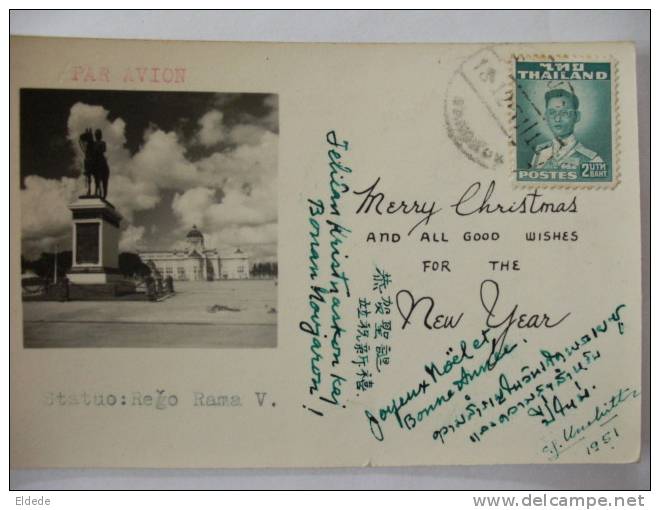 PAR AVION
ไทย
THAILAND
POSTES
2 บาท
BAHT
BANGKOK
Merry Christmas
AND ALL GOOD WISHES
FOR THE
New Year
恭賀聖誕
並祝新禧
Bonan Novjaron!
Joyeux Noël et
Bonne Année.
ปีใหม่
1951
Statuo: Reĝo Rama V.
Eldede
delcampe.net